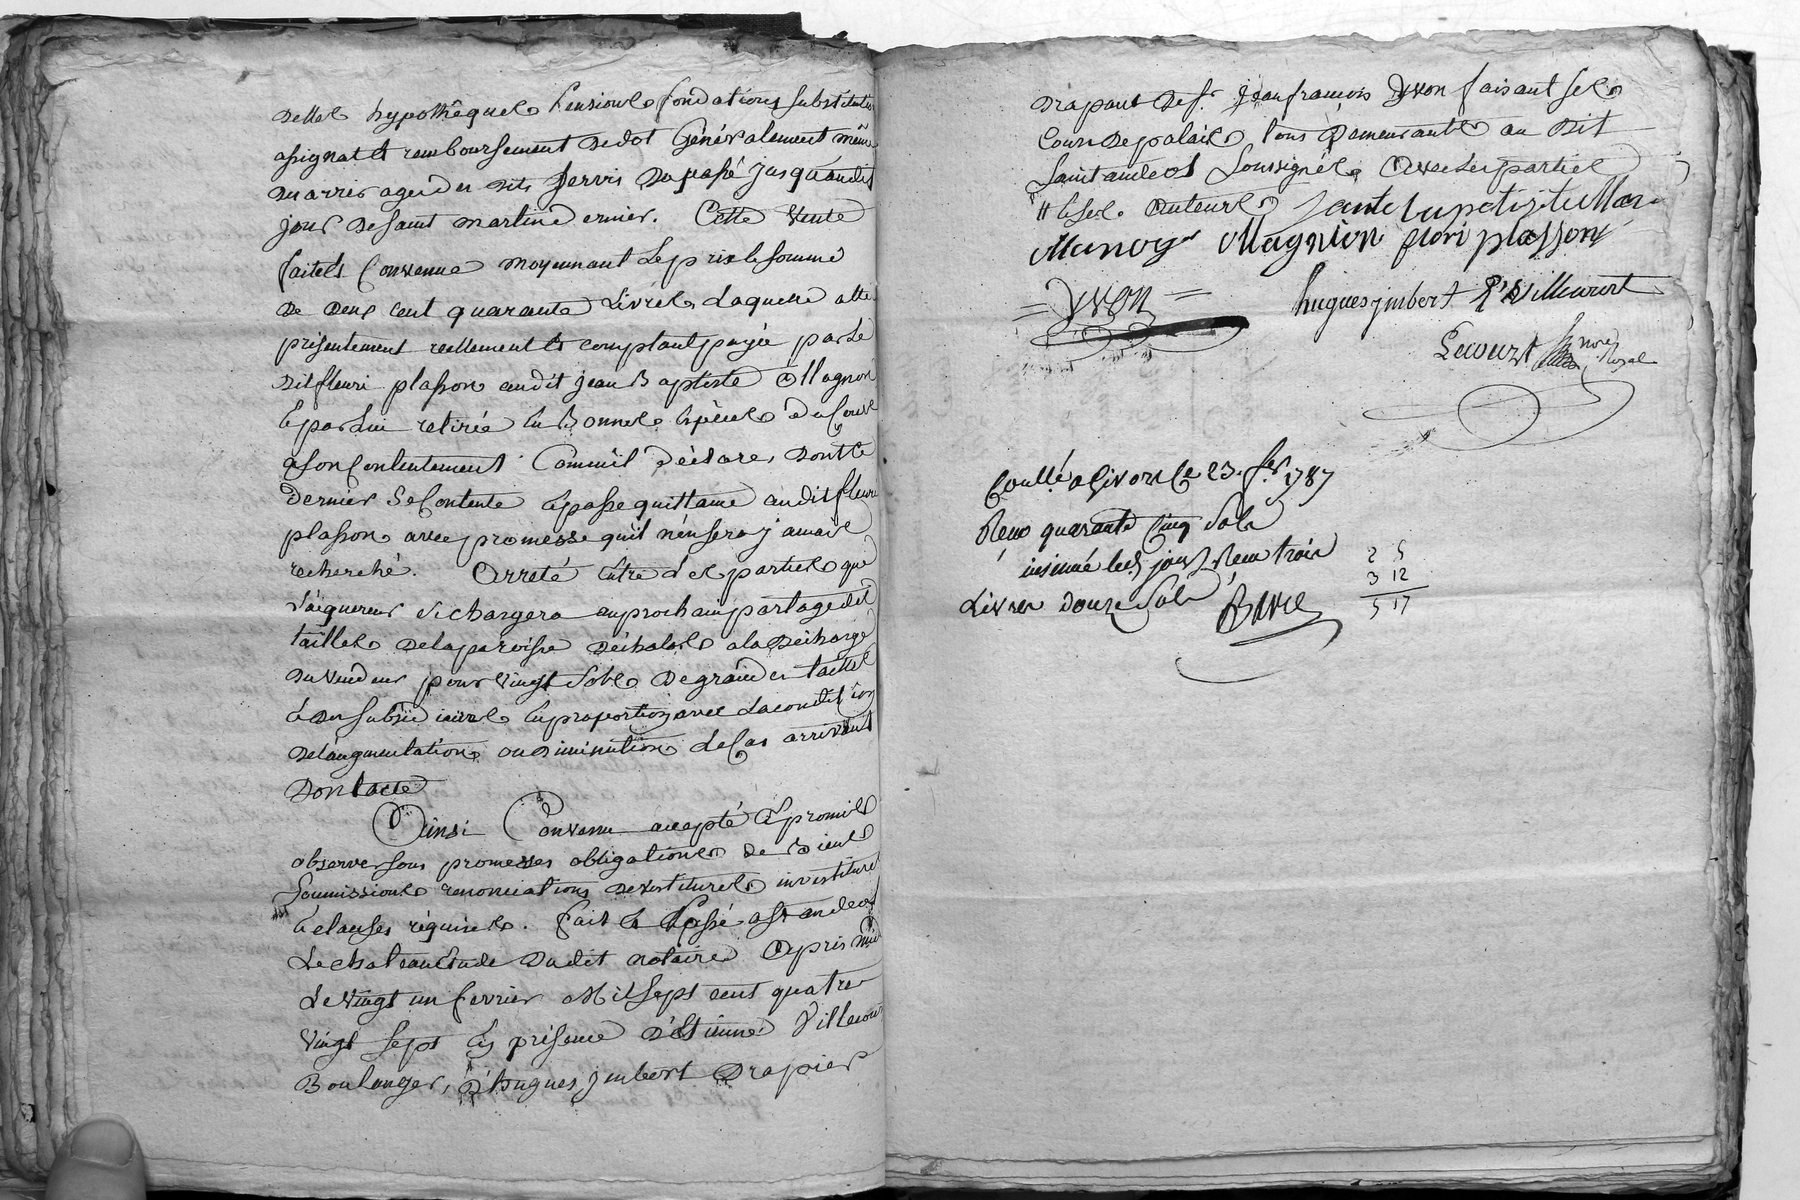 dettes hypothêques pensions fondations substitutions
assignat et remboursement de dot Généralement même
du arrierages des dits servis du passé jusquaudit
jour de saint martin dernier. Cette Vente
faite et Convenue moyennant le prix le somme
de deux cent quarante Livres laquelle a été
présentement réellement et comptant payée par le
dit fleuri plasson audit jean Baptiste Magnon
Et par Lui retirée En Bonnes Espèces du Cours
a son Contentement Comm'il déclare, dont Ce
dernier se Contente Et passe quittance audit fleuri
plasson avec promesse qu'il n'en sera jamais
recherché. Arreté Entre d. es parties que
l'aiquereur se chargera au prochain partage des
tailles de la paroisse d'échalas a la décharge
du vendeur pour vingt sols de grande taille
Et du subsidiaires En proportion avec la condition
de l'augmentation ou diminution le Cas arrivant
dont acte
Ainsi Convenu accepté Et promis
observer sous promesses obligations de Biens
soumissions renonciations devestitures investitures
Et clauses réquises. fait Et Passé a St andeol
Le chateau Etude dudit notaire Apris midi
Le vingt un fevrier Mil sept cent quatre
vingt sept En présence d'Etienne Villecourt
Boulanger, d'hugues jmbert Drapier
Drapant de Sr jean francois Yvon faisant ses
Cours de palais tous demeurants au dit
Saint andeol Soussignés Avec les parties
Et les Auteurs
Magnion flori plasson
= Yvon =
hugues jmbert E. Villecourt
Lecourt nore Royal
Conllé a Givors Le 23. fer. 1787
Reçu quarante Cinq Sols
insinué led jour Reçu trois
Livres douze Sols
2 5
3 12
5 17